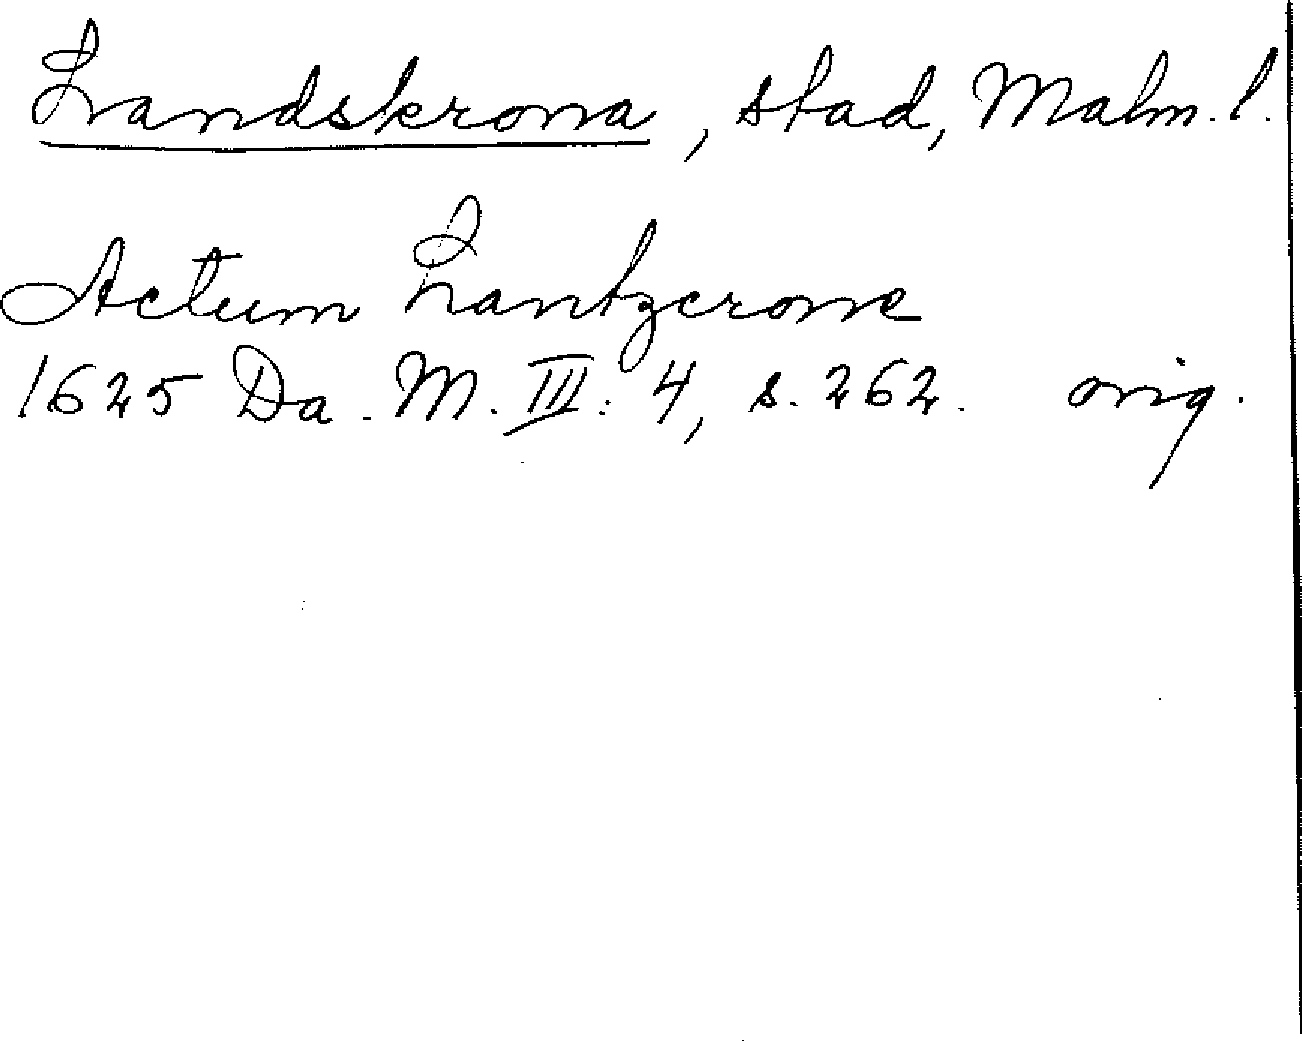 Landskrona, stad, Malm. l.
Actum Lantzcrone
1625 Da. M. III: 4, s. 262. orig.